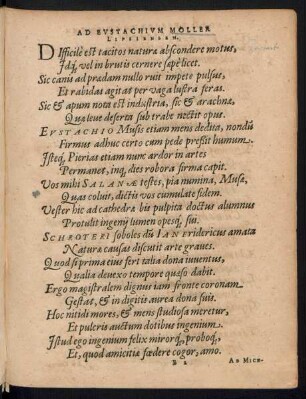 AD EVSTACHIVM MOLLER
LIPSIENSEM.
DIfficile est tacitos natura abscondere motus,
Idq́; vel in brutis cernere sæpè licet.
Sic canis ad prædam nullo ruit impete pulsus,
Et rabidas agitat per vaga lustra feras.
Sic & apum nota est industria, sic & arachnæ,
Quæ leue deserta sub trabe nectit opus.
EVSTACHIO Musis etiam mens dedita, nondũ
Firmus adhuc certo cum pede pressit humum.
Isteq́; Pierias etiam nunc ardor in artes
Permanet, inq́; dies robora firma capit.
Vos mihi SALANÆ testes, pia numina, Musæ,
Quas coluit, dictis vos cumulate fidem.
Vester hic ad cathedræ bis pulpita doctus alumnus
Protulit ingenij lumen opesq́; sui.
SCHROTERI soboles dũ IANFRIDERICVS amata
Naturæ causas discutit arte graues.
Quod si prima eius fert talia dona iuuentus,
Qualia deuexo tempore quæso dabit.
Ergo magistralem dignus iam fronte coronam
Gestat, & in digitis aurea dona suis.
Hoc nitidi mores, & mens studiosa meretur,
Et pulcris auctum dotibus ingenium.
Istud ego ingenium felix mirorq́;, proboq́;,
Et, quod amicitiæ fœdere cogor, amo.
B 2 AD MICE-